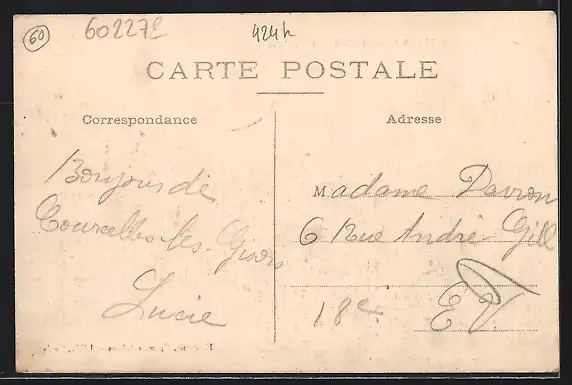 60
602272
424h
CARTE POSTALE
Correspondance
Adresse
Bonjour de
Courcelles-les-Gisors
Lucie
Madame Davron
6 Rue André Gill
18e
E.V.